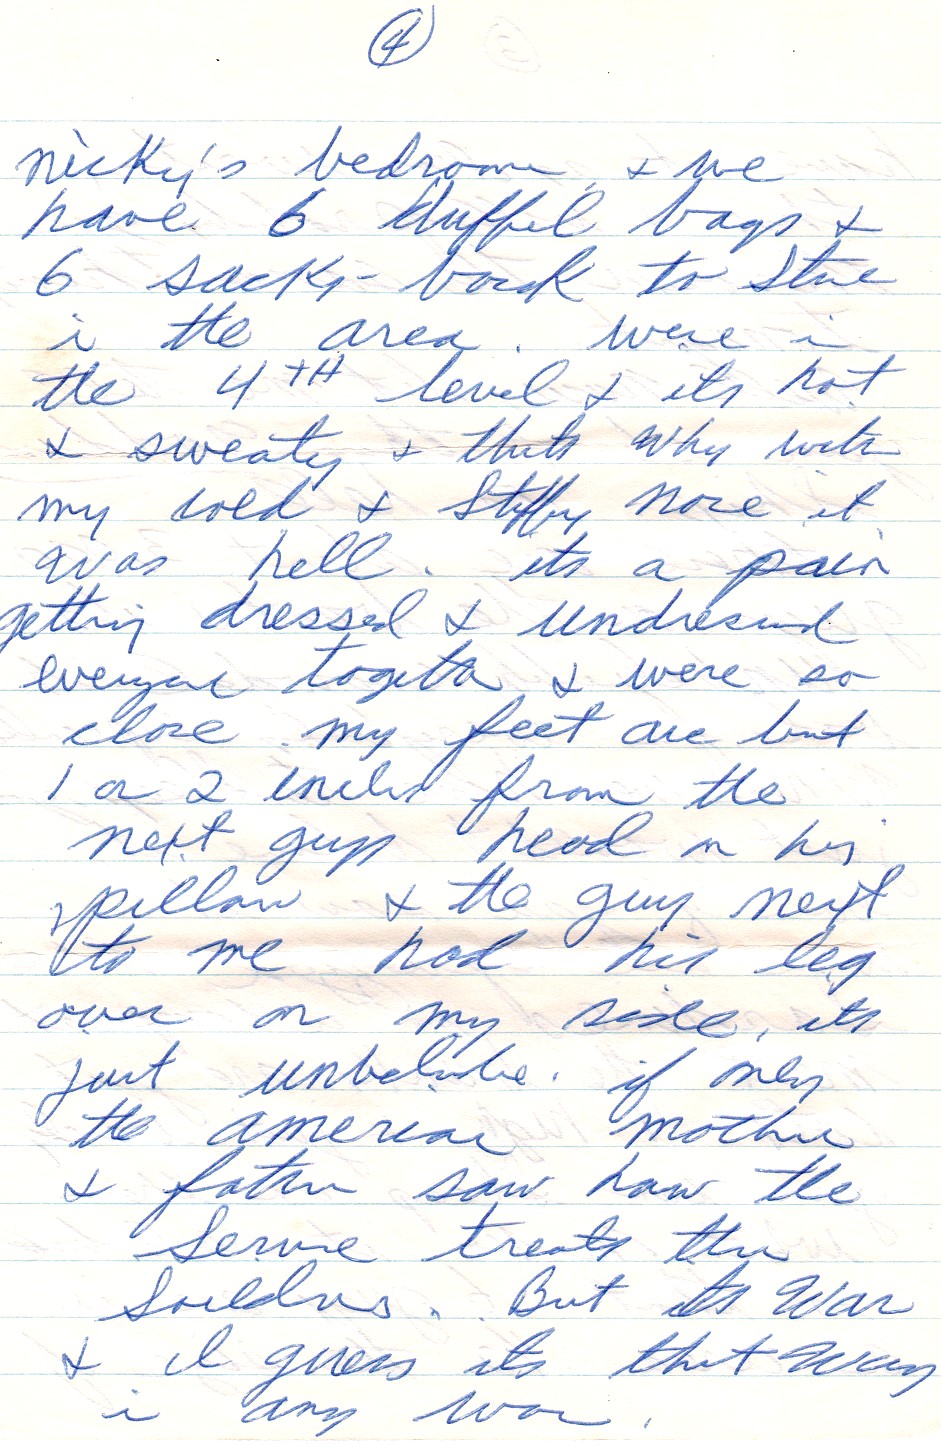 4
nicky's bedroom, & we
have 6 duffel bags &
6 sacks - back to store
in the area. were in
the 4TH level & its hot
& sweaty & thats why with
my cold & Stuffy nose it
was hell. its a pain
getting dressed & undressed
everyone together & were so
close. my feet are but
1 or 2 inches from the
next guys head on his
pillow & the guy next
to me had his leg
over on my side, its
just unbelievable. if only
the american mother
& father saw how the
Service treats their
Soildiers. But its War
& I guess its that way
in any war.